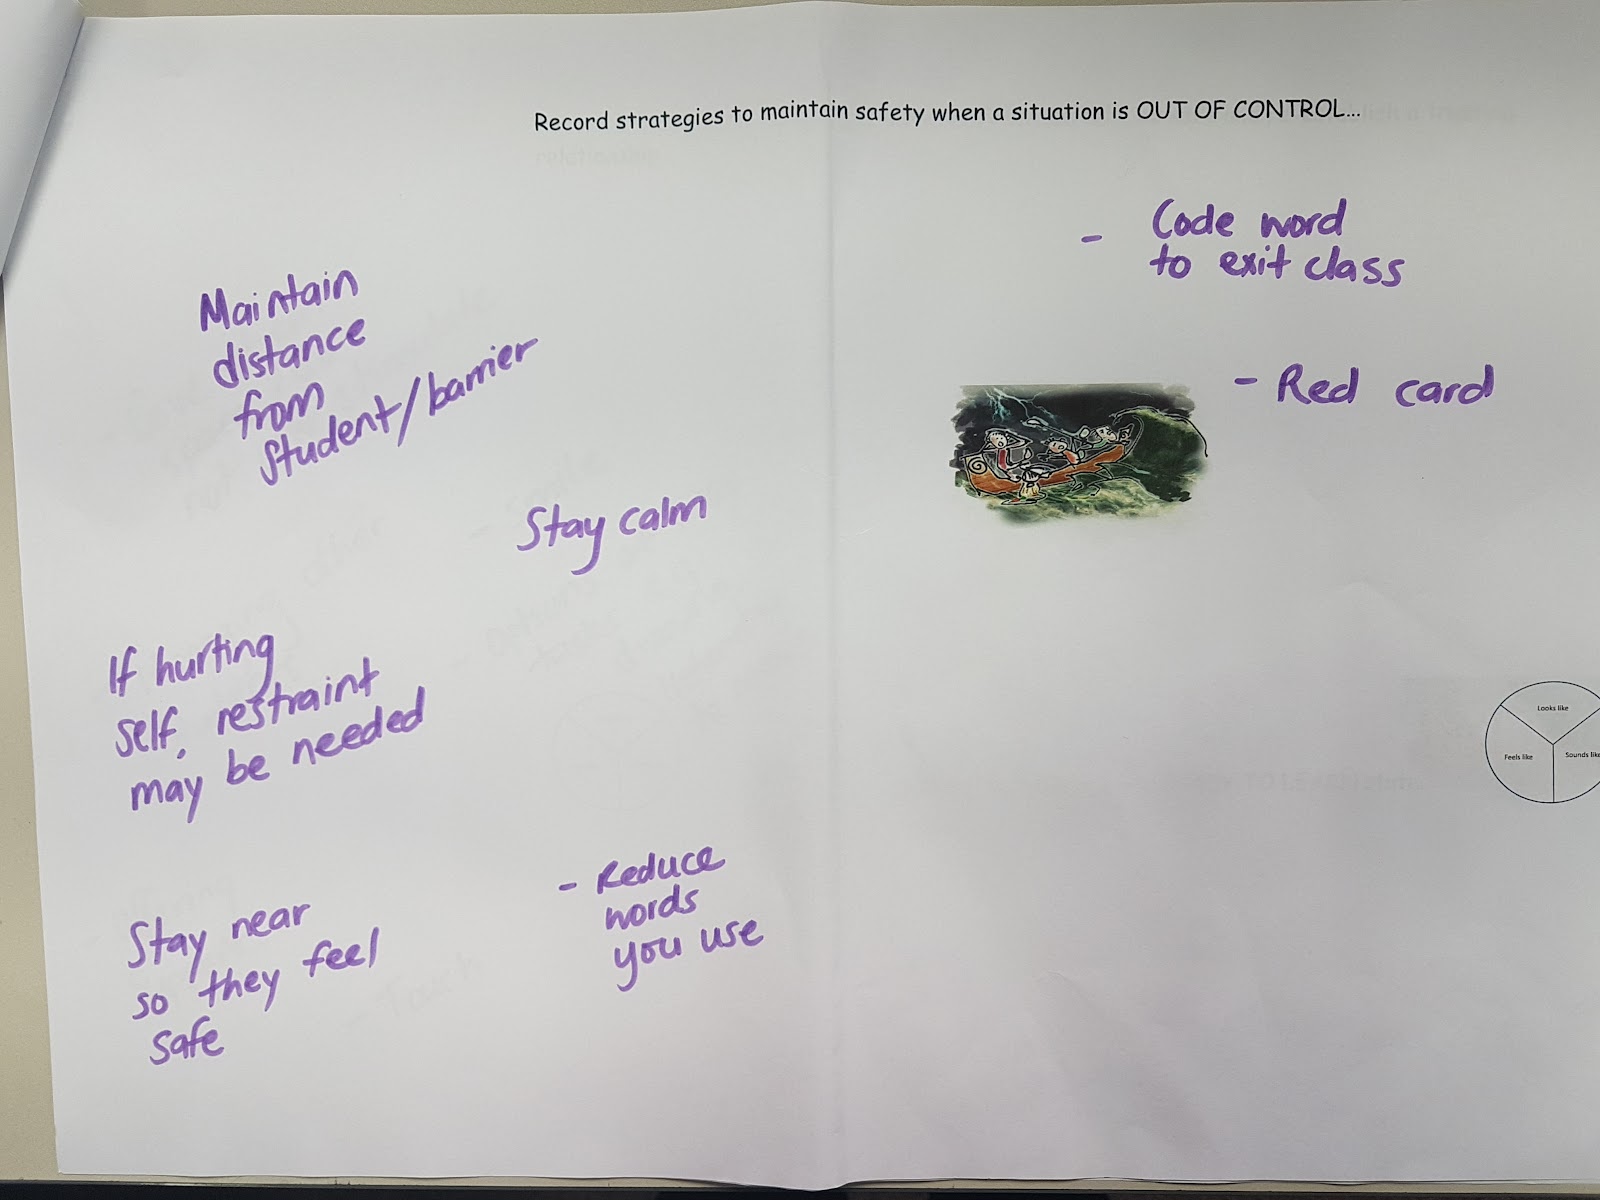 Record strategies to maintain safety when a situation is OUT OF CONTROL...
Maintain
distance
from
Student/barrier
Stay calm
If hurting
self, restraint
may be needed
Stay near
so they feel
safe
- Reduce
words
you use
- Code word
to exit class
- Red card
Looks like
Feels like
Sounds like